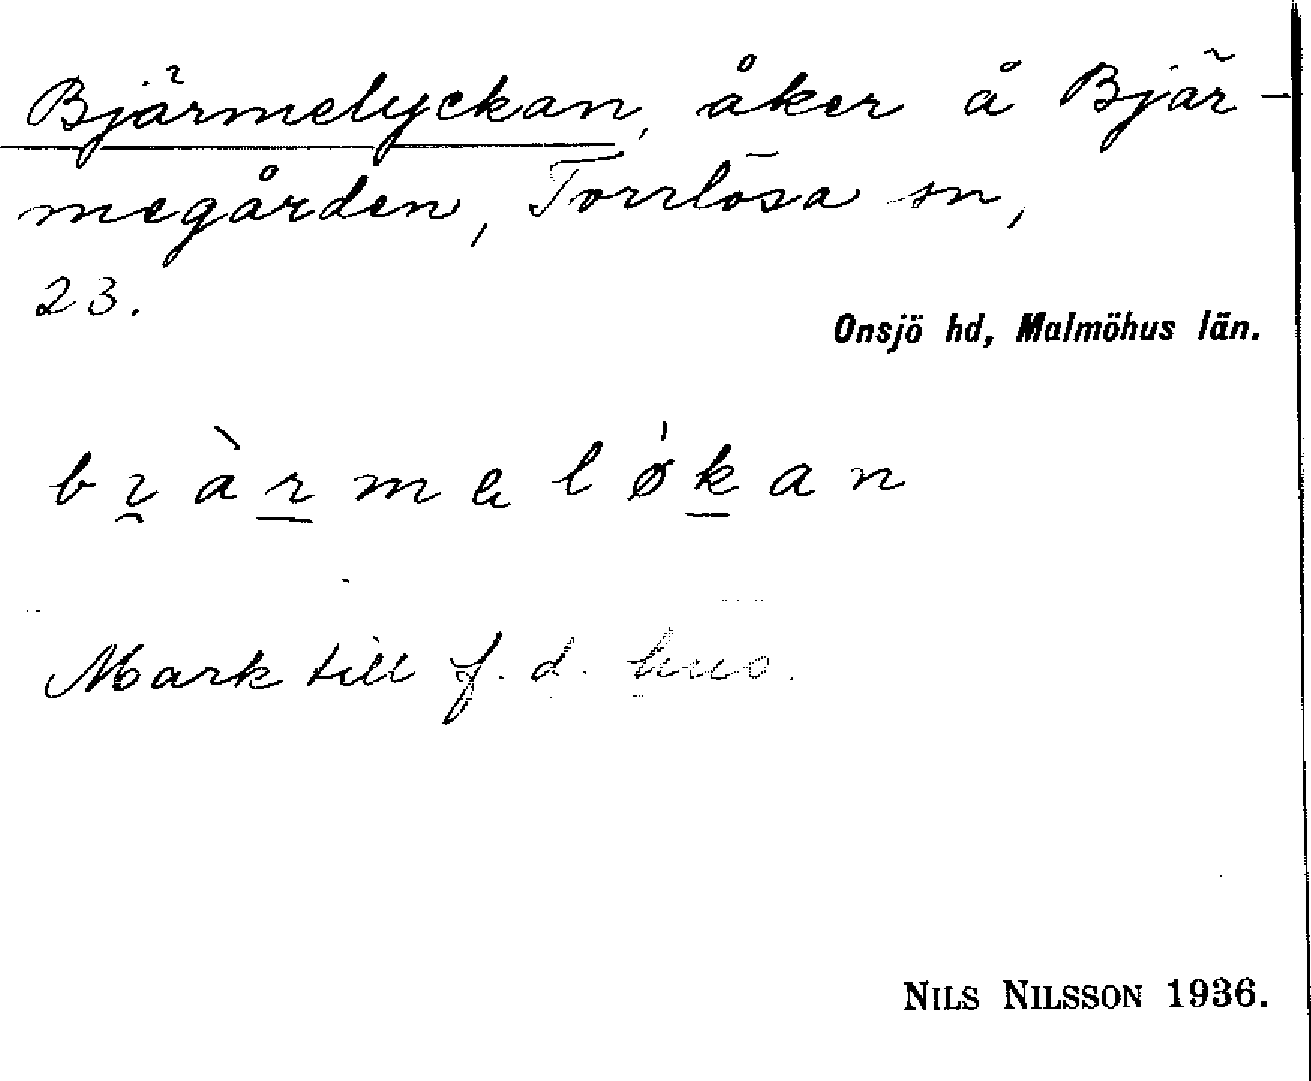 Bjärmelyckan, åker å Bjär-
megården, Torrlösa sn,
23.
Onsjö hd, Malmöhus län.
bɪ̯àrməlø̍kan
Mark till f. d. hus.
NILS NILSSON 1936.